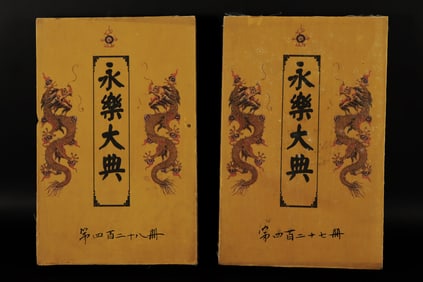 永樂大典
第四百二十八冊
永樂大典
第四百二十七冊